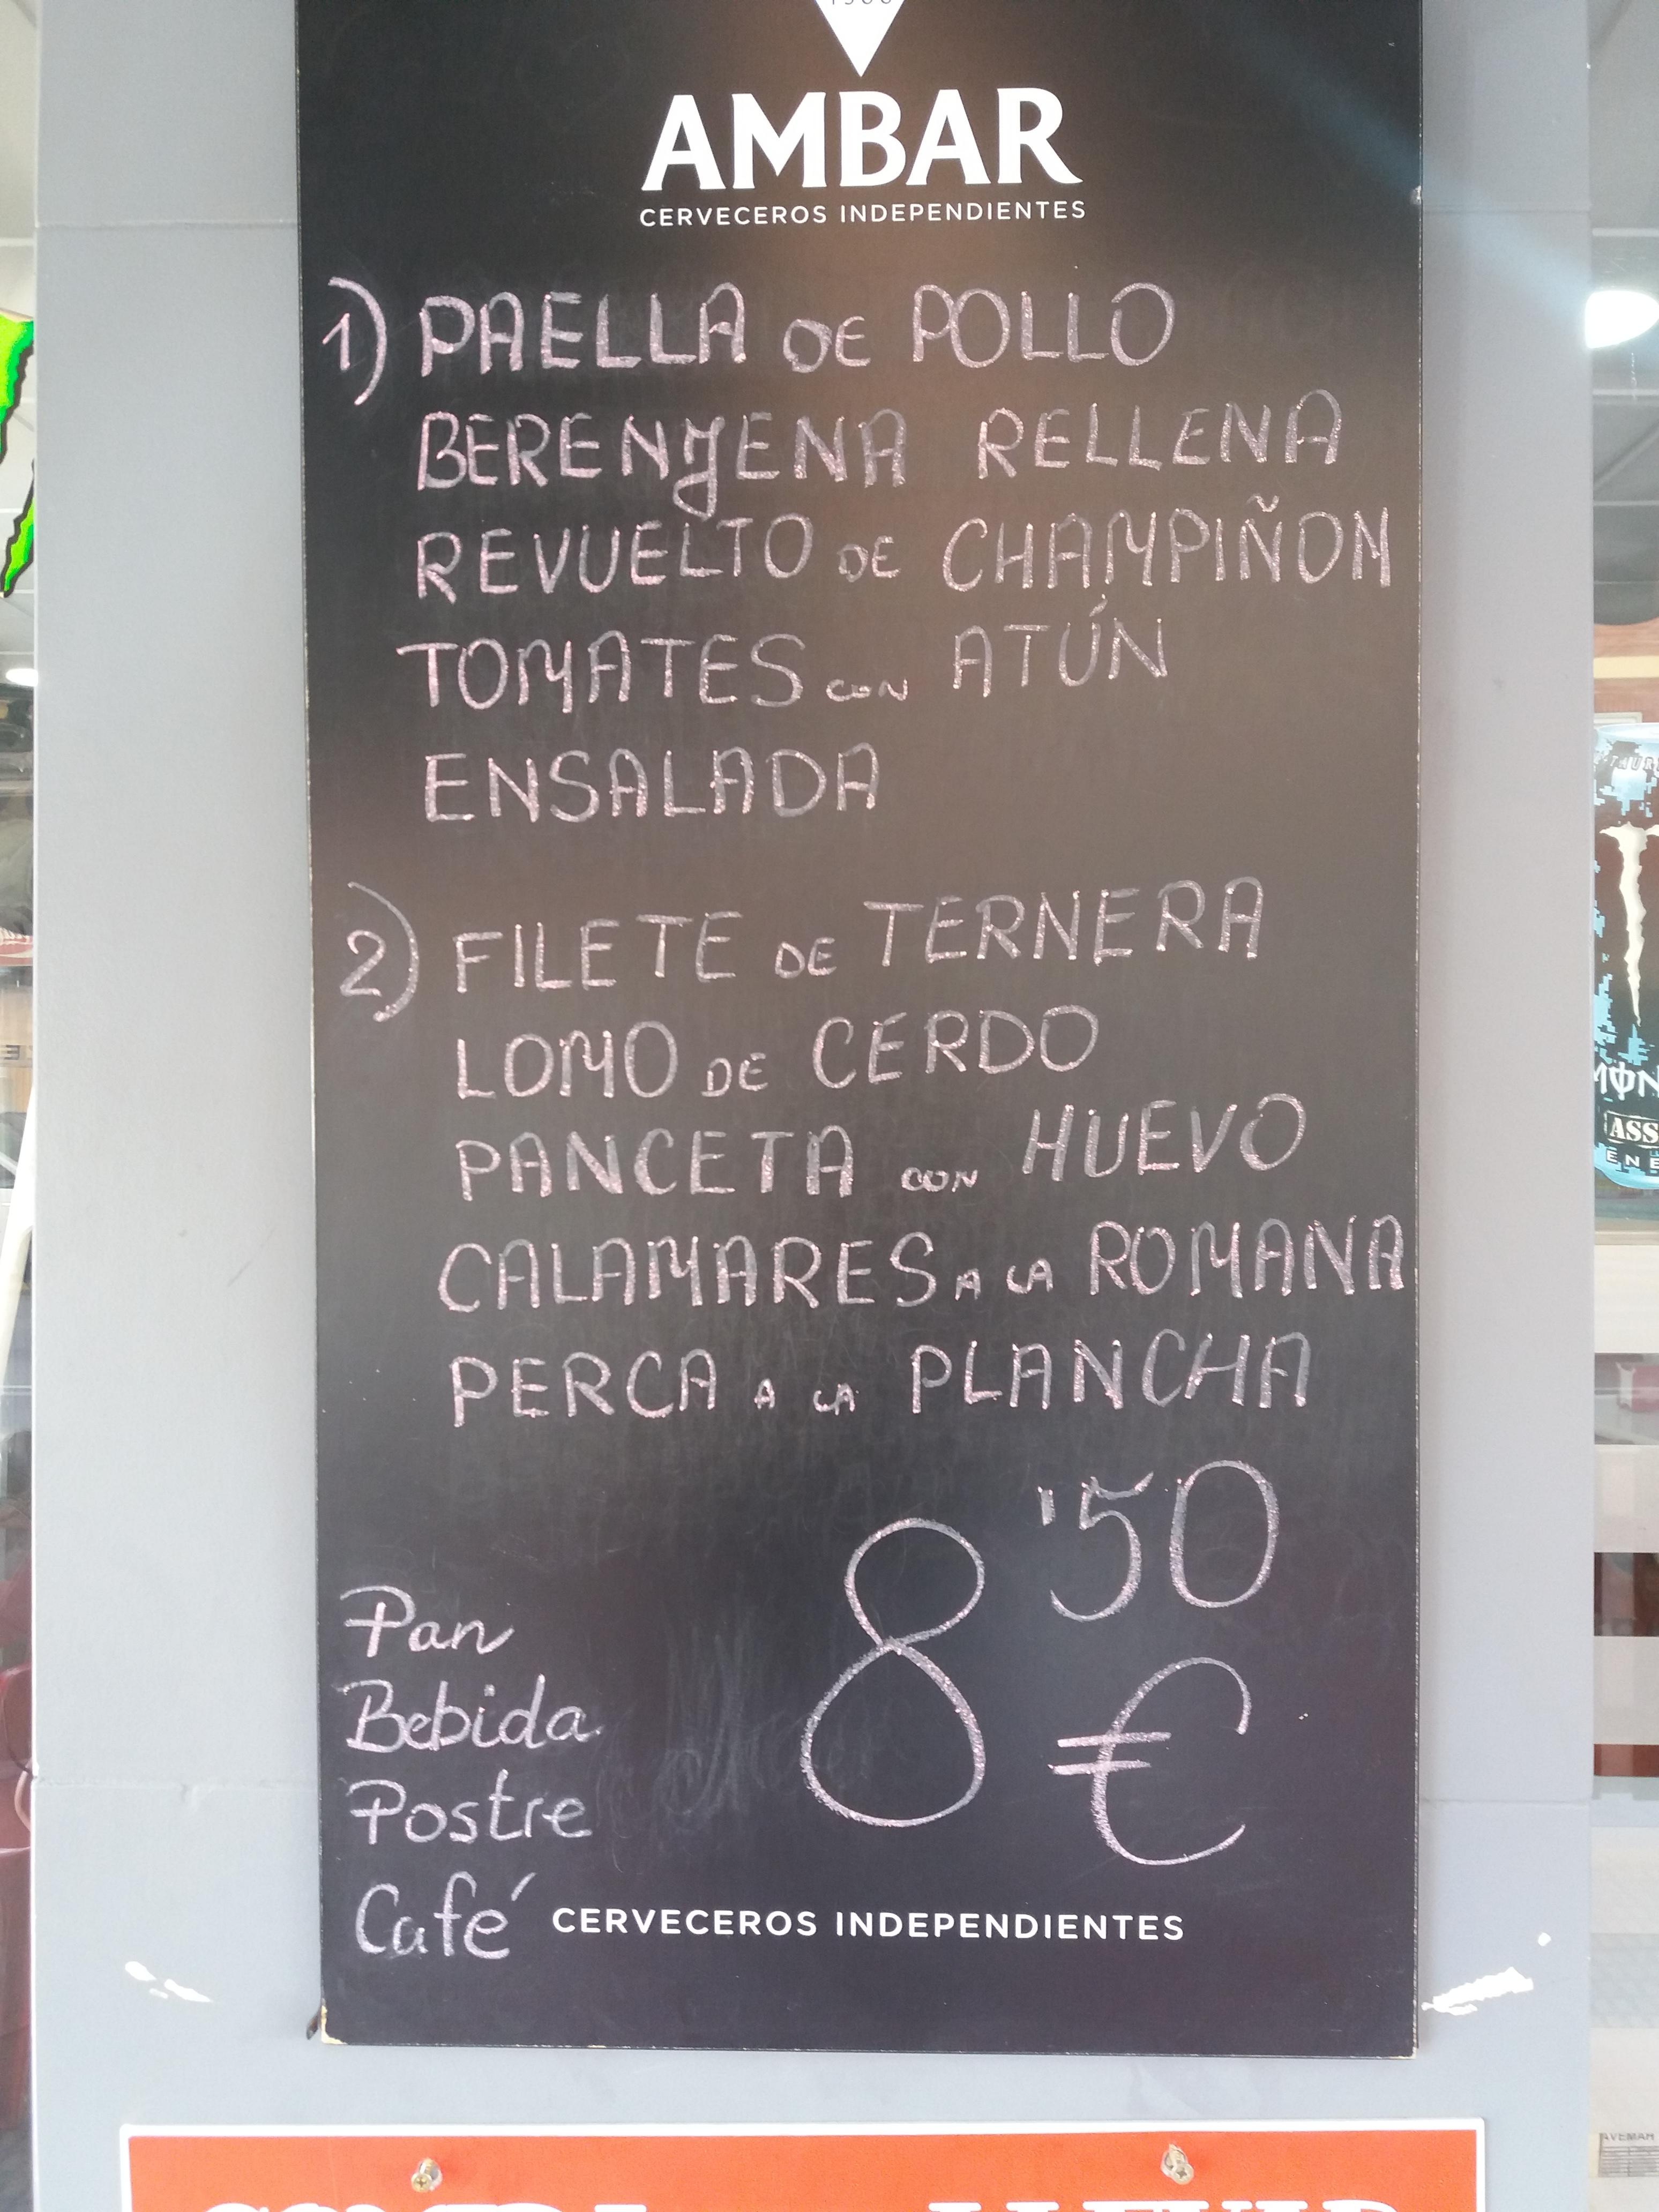 AMBAR
CERVECEROS INDEPENDIENTES
1) PAELLA DE POLLO
BERENJENA RELLENA
REVUELTO DE CHAMPIÑON
TOMATES CON ATÚN
ENSALADA
2) FILETE DE TERNERA
LOMO DE CERDO
PANCETA CON HUEVO
CALAMARES A LA ROMANA
PERCA A LA PLANCHA
8'50
€
Pan
Bebida
Postre
Café
CERVECEROS INDEPENDIENTES